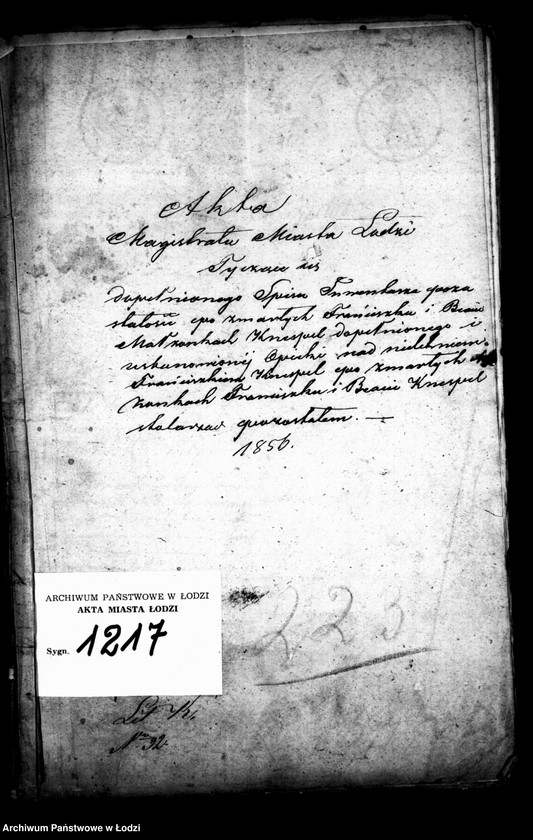 Akta
Magistratu Miasta Łodzi
Tyczące się
dopełnionego Spisu Inwentarza pozo
stałości po zmarłych Franciszku i Beacie
Małżonkach Knespel dopełnionego i
ustanowionéj Opieki nad nieletnim
Franciszkiem Knespel po zmarłych
żonkach Franciszku i Beacie Knespel
pozostałem. —
1856.
223
ARCHIWUM PAŃSTWOWE W ŁODZI
AKTA MIASTA ŁODZI
Sygn. 1217
Lit K.
No 32.
Archiwum Państwowe w Łodzi